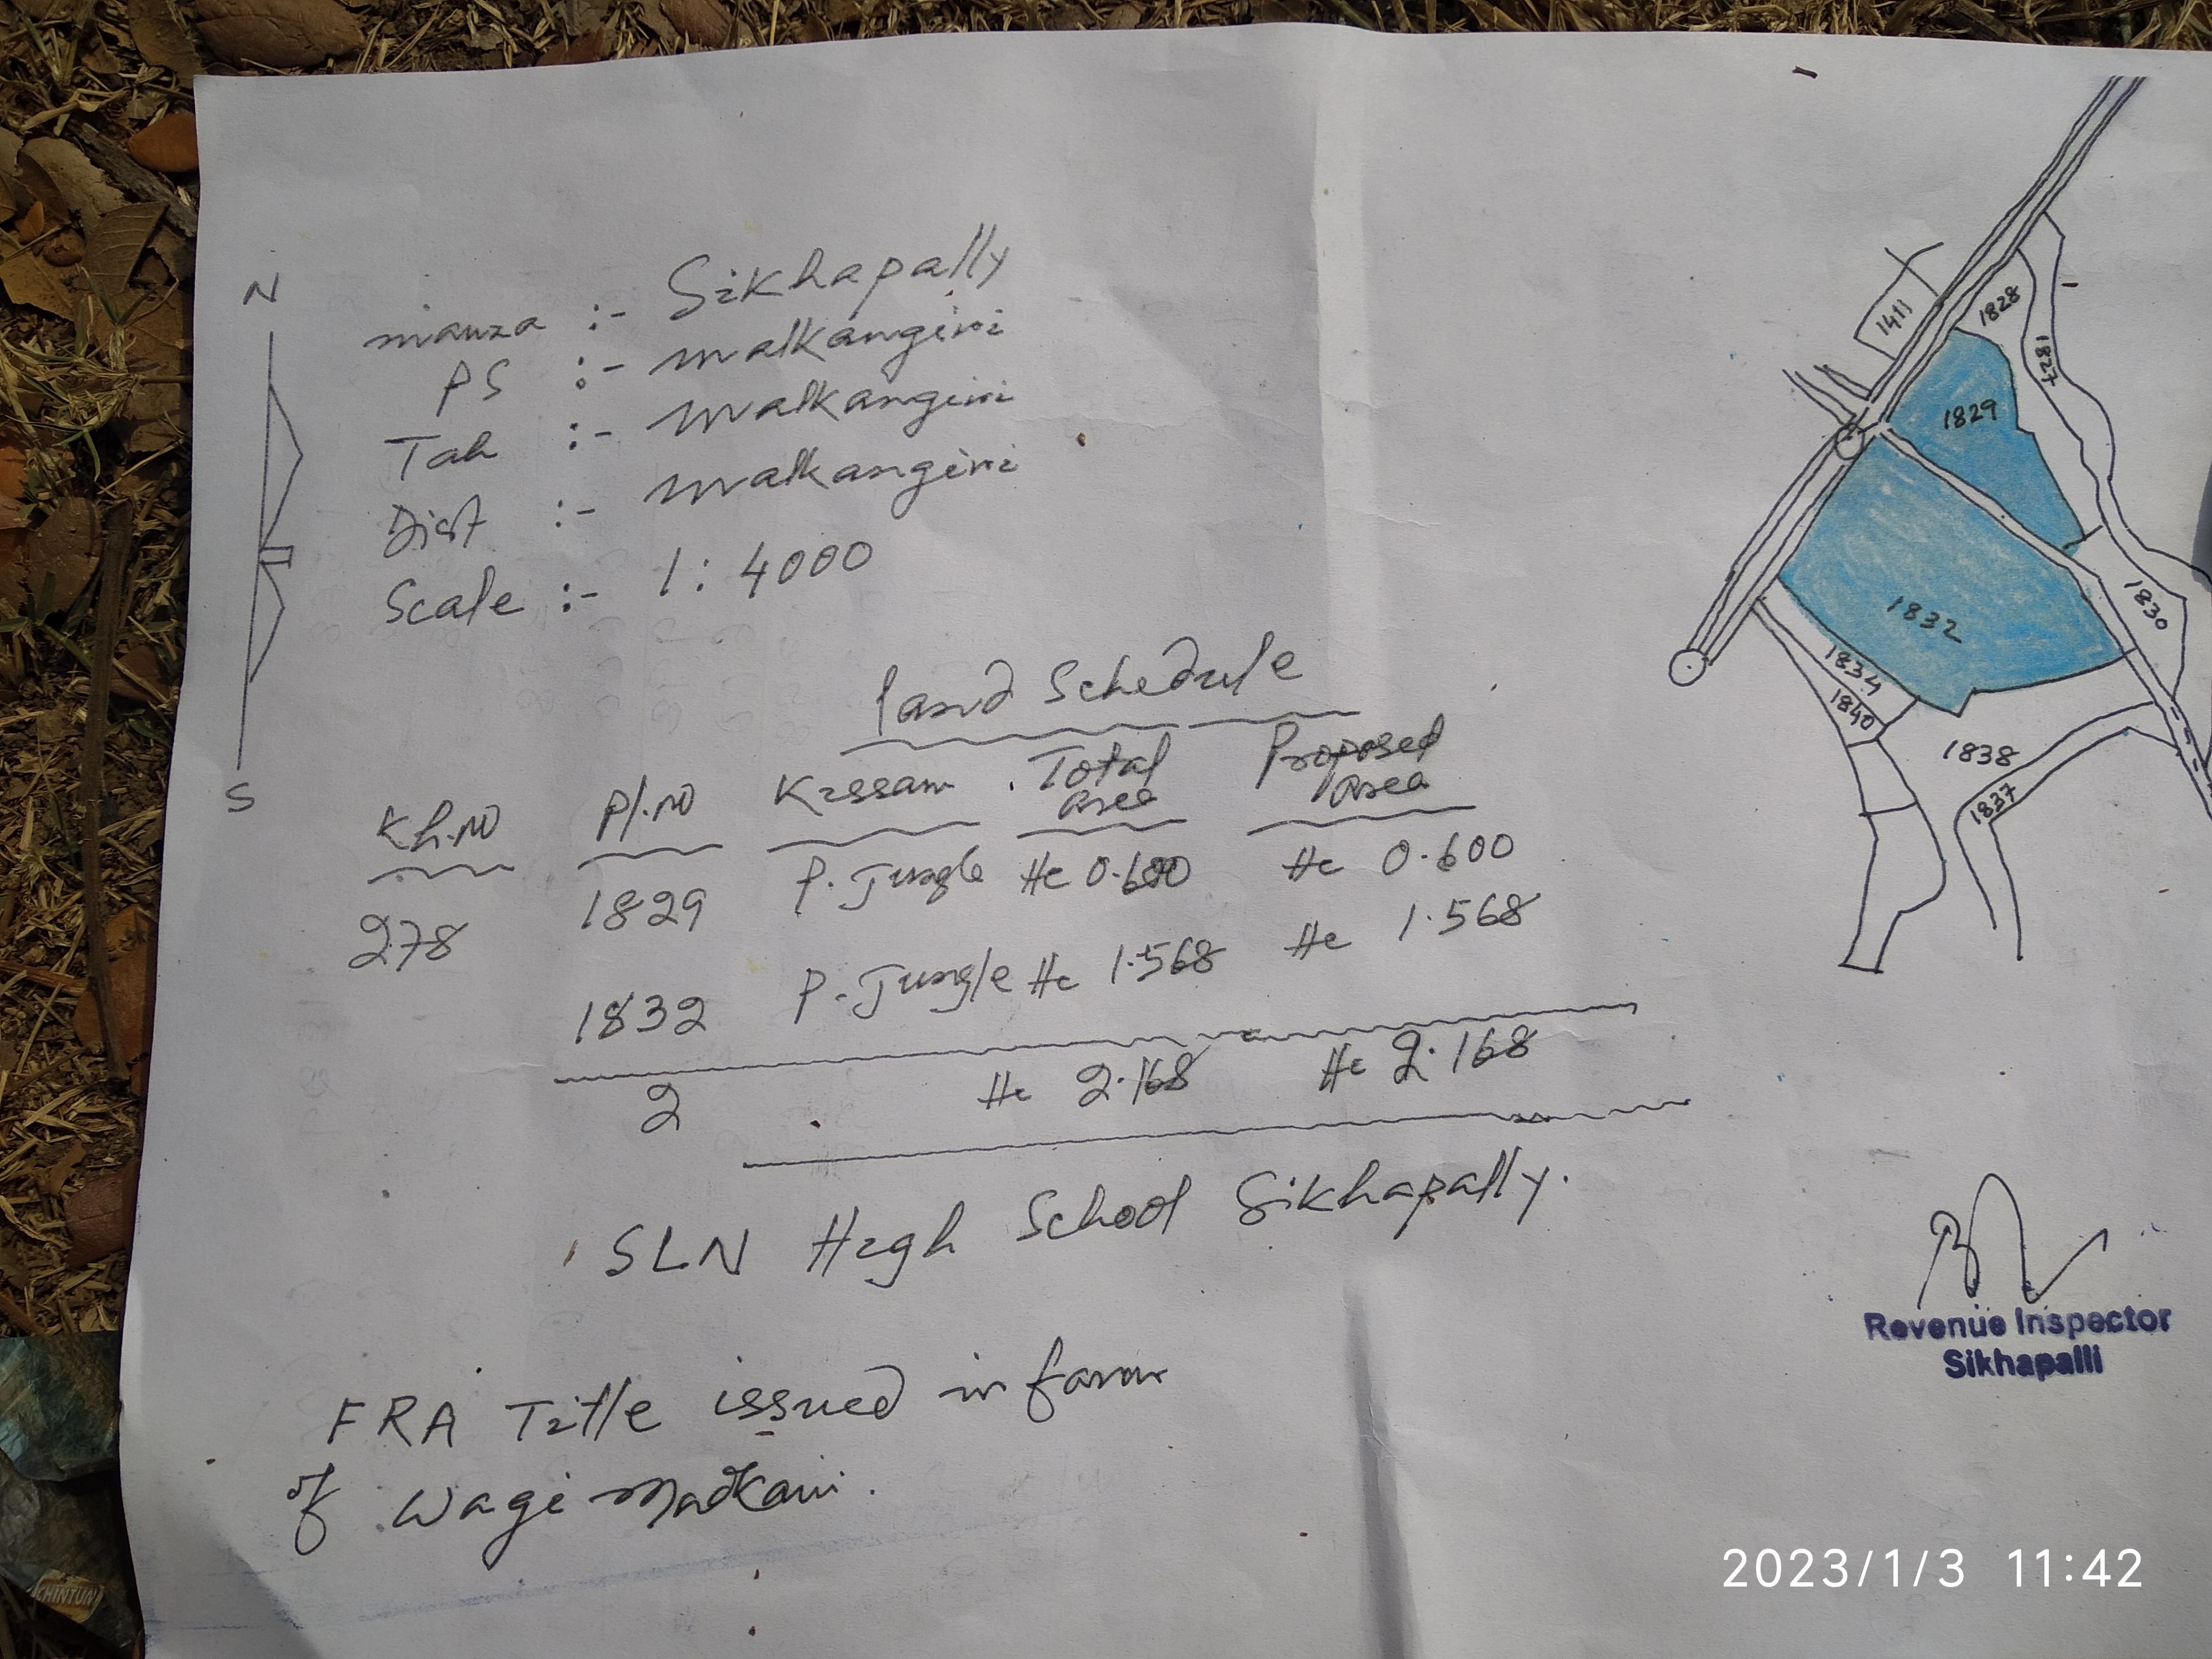 N
S
mauza :- Sikhapally
PS :- malkangiri
Tah :- malkangiri
Dist :- malkangiri
Scale :- 1 : 4000
Land Schedule
Kh.no Pl.no Kissam Total area Proposed area
278 1829 P. Jungle Hc 0.600 Hc 0.600
1832 P. Jungle Hc 1.568 Hc 1.568
2 Hc 2.168 Hc 2.168
SLN High School Sikhapally.
FRA Title issued in favour
of Wagi Madkami.
1411
1828
1827
1829
1830
1832
1834
1840
1838
1837
Revenue Inspector
Sikhapalli
CHINTUN
2023/1/3 11:42